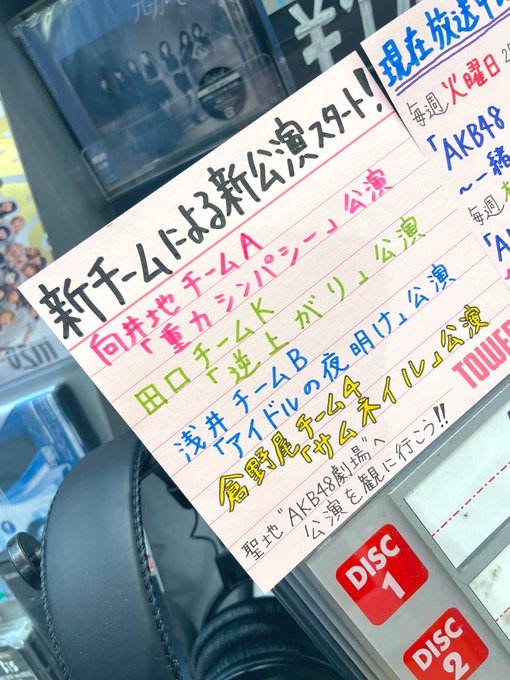 新チームによる新公演スタート!
向井地チームA
「重力シンパシー」公演
田口チームK
「逆上がり」公演
浅井チームB
「アイドルの夜明け」公演
倉野尾チーム4
「サムネイル」公演
聖地"AKB48劇場"へ
公演を観に行こう!!
現在放送中
毎週火曜日
「AKB48
~一緒
毎週
TOWER
DISC
1
DISC
2